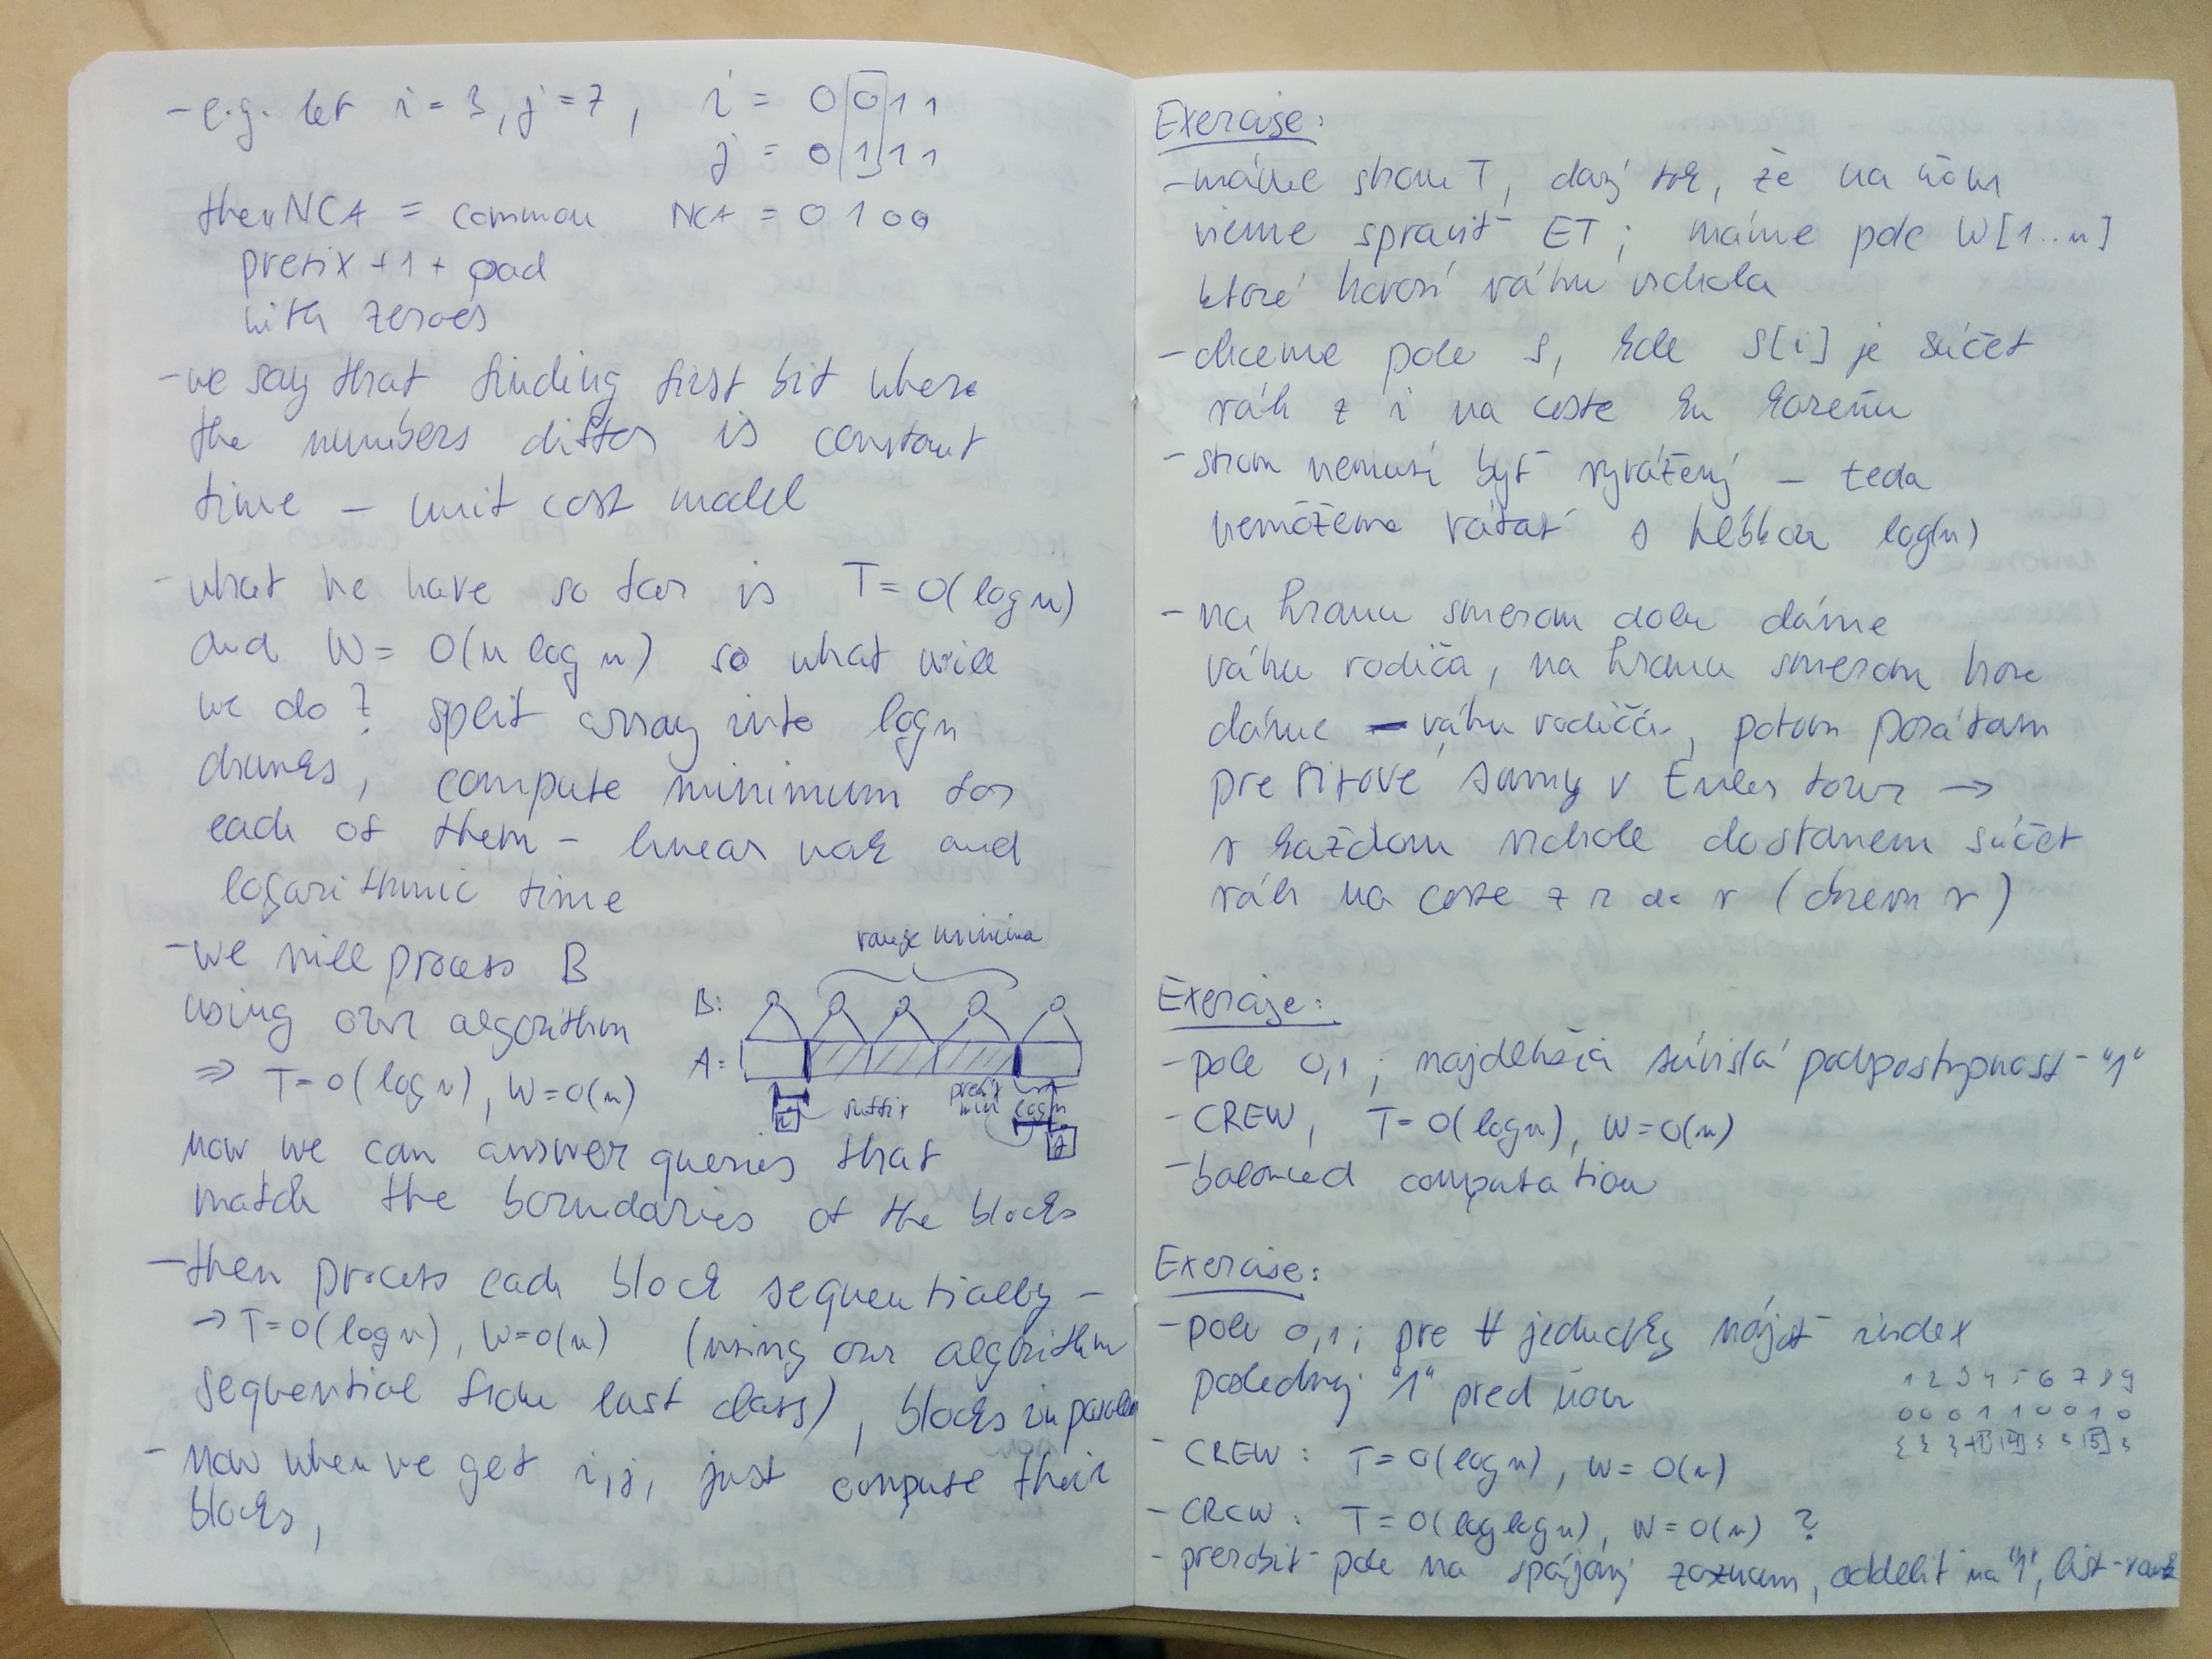 - e.g. let i = 3, j = 7, i = 0011
j = 0111
then NCA = common NCA = 0100
prefix + 1 + pad
with zeroes
- we say that finding first bit where
the numbers differ is constant
time - unit cost model
- what we have so far is T = O(log n)
and W = O(n log n) so what will
we do? split array into log n
chunks, compute minimum for
each of them - linear work and
logarithmic time
- we will process B
using our algorithm
⇒ T = O(log n), W = O(n)
range minima
B:
A:
i suffix prefix min log n j
now we can answer queries that
match the boundaries of the blocks
- then process each block sequentially -
→ T = O(log n), W = O(n) (using our algorithm
sequential from last class), blocks in parallel
- now when we get i, j, just compute their
blocks,
Exercise:
- máme strom T, daný tak, že na ňom
vieme spraviť ET; máme pole W[1..n]
ktoré hovorí váhu vrchola
- chceme pole S, kde S[i] je súčet
váh z i na ceste ku koreňu
- strom nemusí byť vyvážený - teda
nemôžeme rátať s hĺbkou log(n)
- na hranu smerom dole dáme
váhu rodiča, na hranu smerom hore
dáme - váhu rodiča, potom porátam
prefixové sumy v Euler tour →
v každom vrchole dostanem súčet
váh na ceste z r do v (okrem v)
Exercise:
- pole 0,1; najdlhšia súvislá podpostupnosť "1"
- CREW, T = O(log n), W = O(n)
- balanced computation
Exercise:
- pole 0,1; pre ∀ jednotky nájsť index
poslednej "1" pred ňou
1 2 3 4 5 6 7 8 9
0 0 0 1 1 0 0 1 0
- CREW: T = O(log n), W = O(n)
- CRCW: T = O(log log n), W = O(n) ?
- prerobiť pole na spájaný zoznam, oddeliť na "1", list-rank